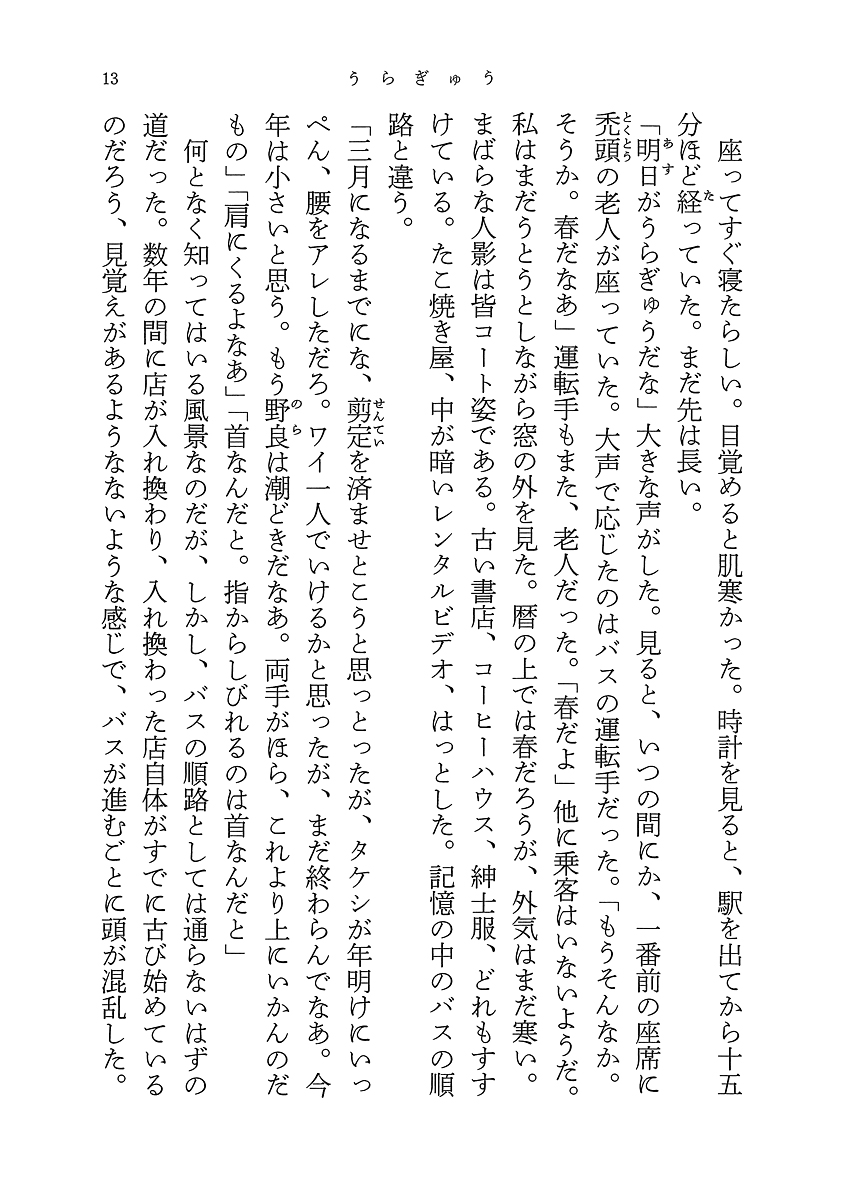 13
うらぎゅう
座ってすぐ寝たらしい。目覚めると肌寒かった。時計を見ると、駅を出てから十五
分ほど経っていた。まだ先は長い。
「明日がうらぎゅうだな」大きな声がした。見ると、いつの間にか、一番前の座席に
禿頭の老人が座っていた。大声で応じたのはバスの運転手だった。「もうそんなか。
そうか。春だなあ」運転手もまた、老人だった。「春だよ」他に乗客はいないようだ。
私はまだうとうとしながら窓の外を見た。暦の上では春だろうが、外気はまだ寒い。
まばらな人影は皆コート姿である。古い書店、コーヒーハウス、紳士服、どれもすす
けている。たこ焼き屋、中が暗いレンタルビデオ、はっとした。記憶の中のバスの順
路と違う。
「三月になるまでにな、剪定を済ませとこうと思っとったが、タケシが年明けにいっ
ぺん、腰をアレしただろ。ワイ一人でいけるかと思ったが、まだ終わらんでなあ。今
年は小さいと思う。もう野良は潮どきだなあ。両手がほら、これより上にいかんのだ
もの」「肩にくるよなあ」「首なんだと。指からしびれるのは首なんだと」
何となく知ってはいる風景なのだが、しかし、バスの順路としては通らないはずの
道だった。数年の間に店が入れ換わり、入れ換わった店自体がすでに古び始めている
のだろう、見覚えがあるようなないような感じで、バスが進むごとに頭が混乱した。